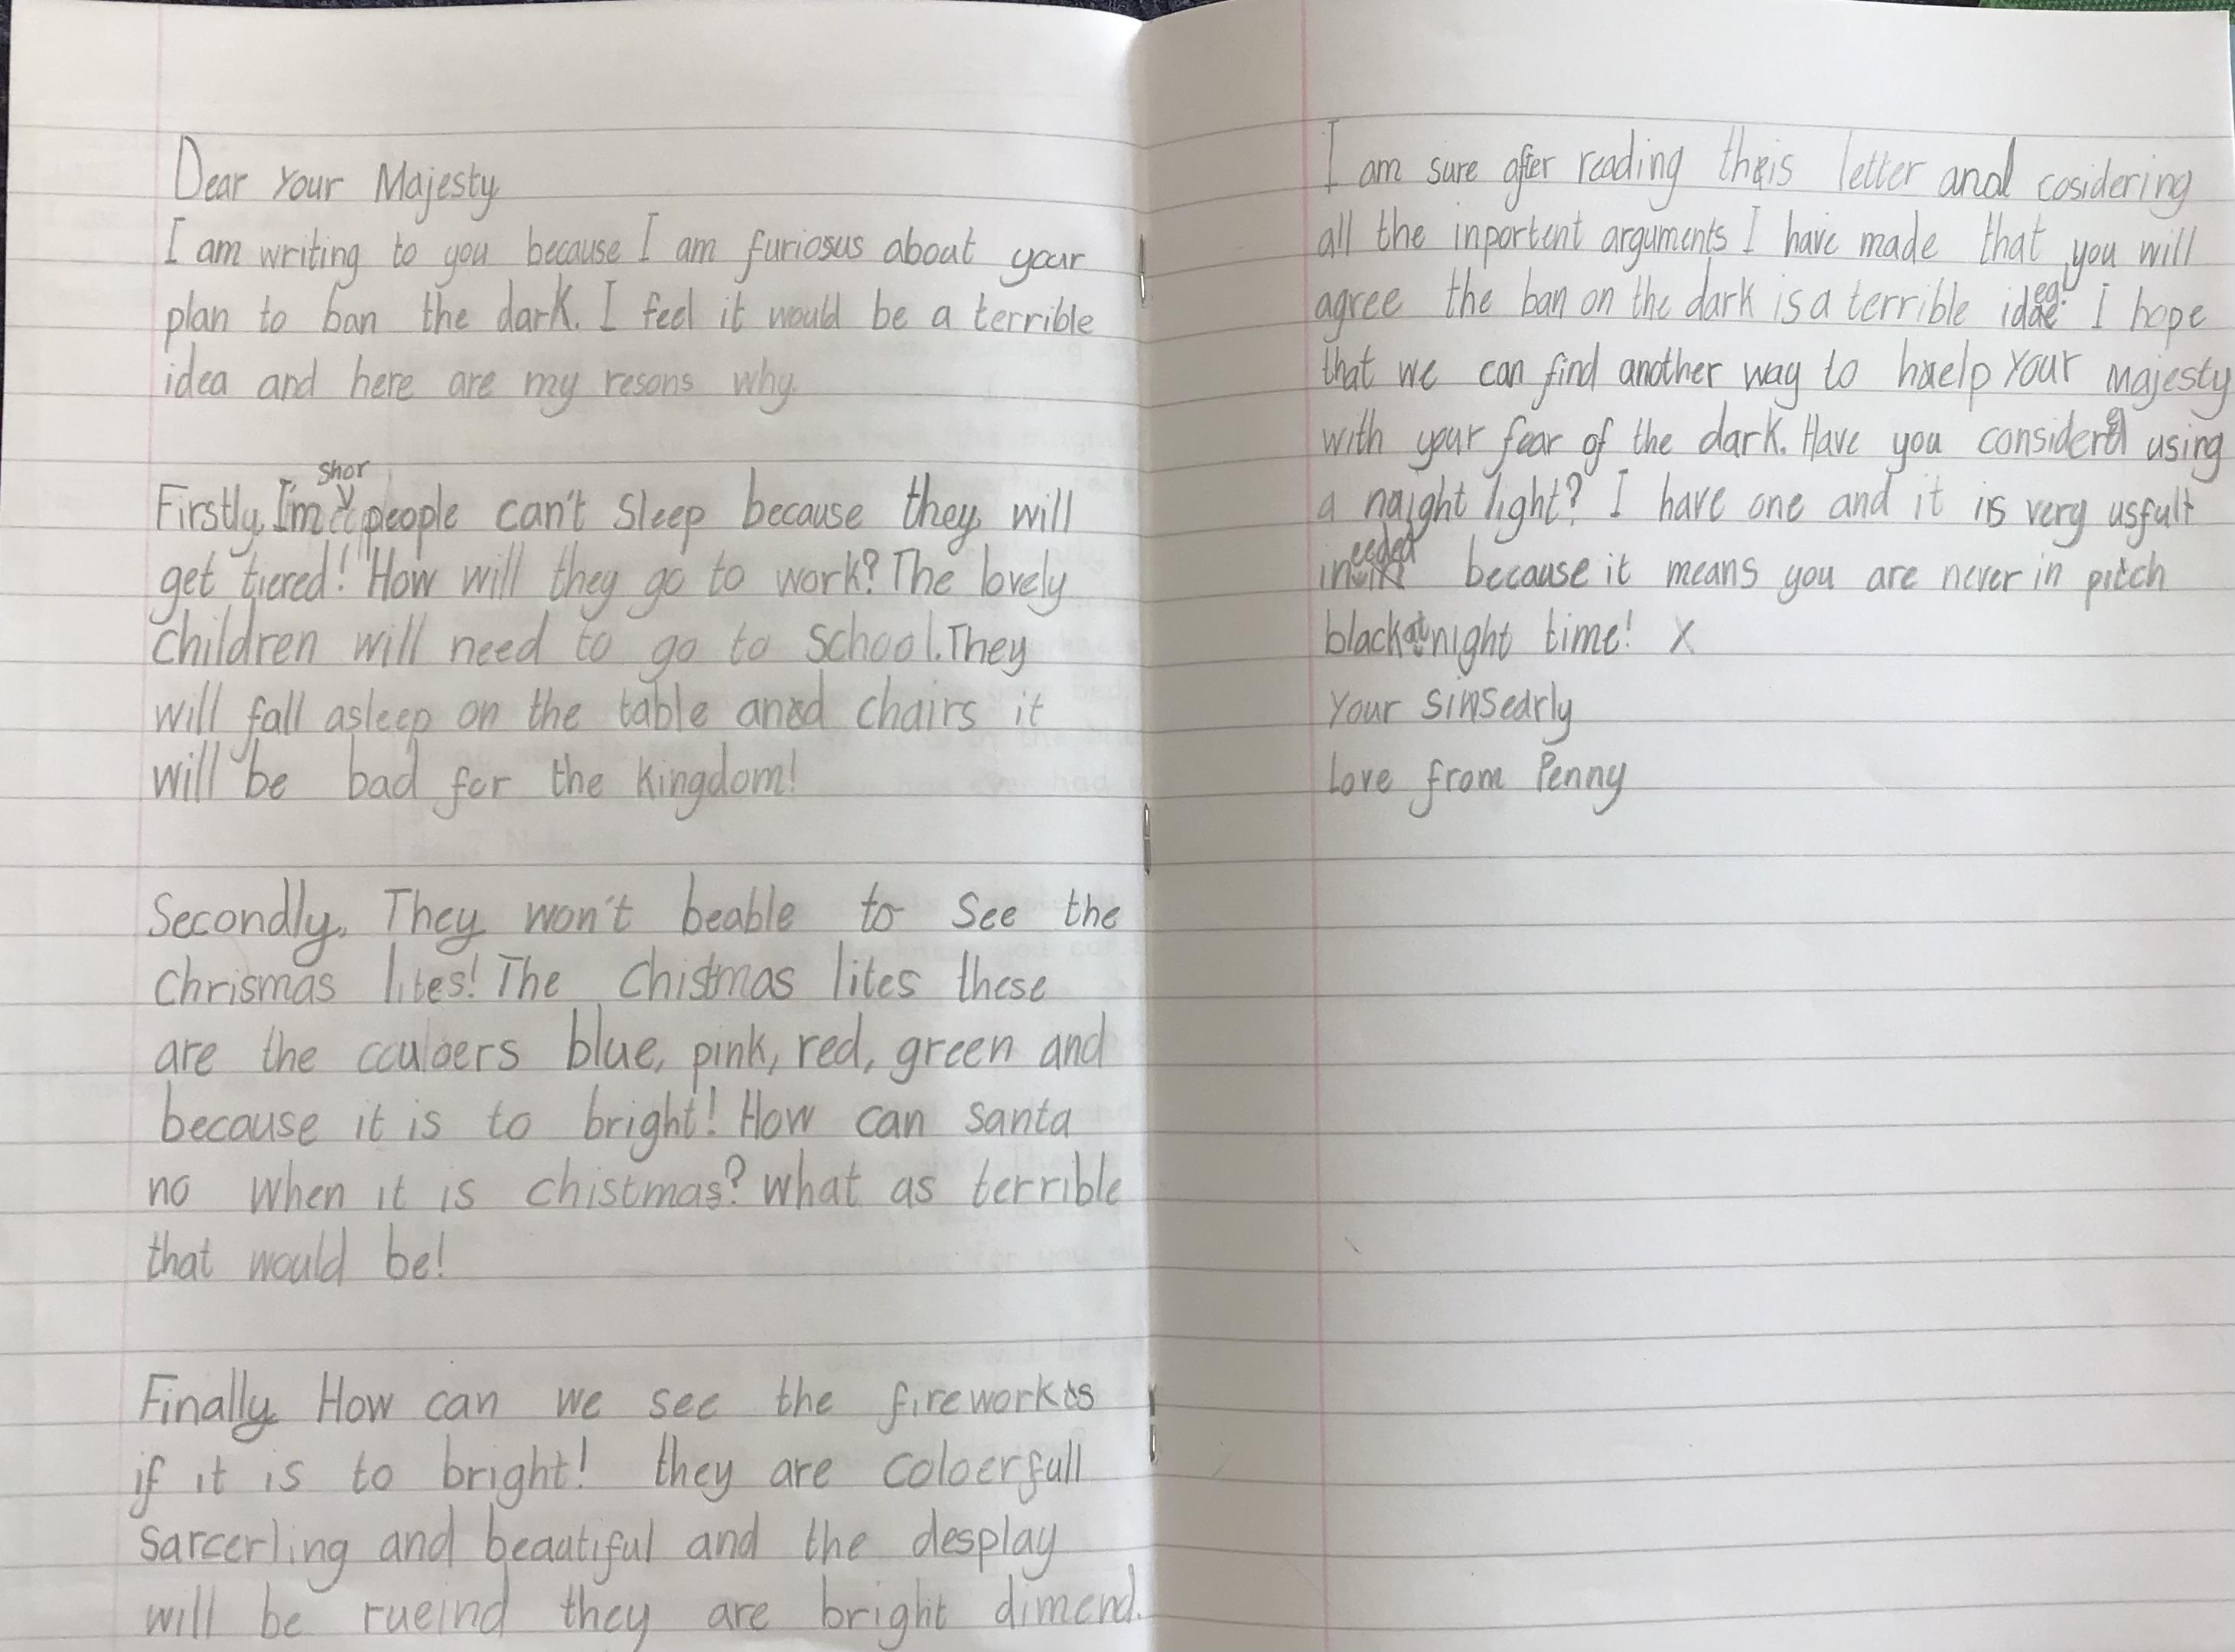 Dear Your Majesty
I am writing to you because I am furiosus about your
plan to ban the dark. I feel it would be a terrible
idea and here are my resons why
Firstly, I'm shor people can't sleep because they will
get tiered! How will they go to work? The lovely
children will need to go to school. They
will fall asleep on the table and chairs it
will be bad for the kingdom!
Secondly, They won't beable to see the
chrismas lites! The chistmas lites these
are the cculoers blue, pink, red, green and
because it is to bright! How can santa
no when it is chistmas? what as terrible
that would be!
Finally How can we see the fireworks
if it is to bright! they are coloerfull
sarcerling and beautiful and the desplay
will be rueind they are bright dimend.
I am sure after reading this letter and cosidering
all the inportent arguments I have made that you will
agree the ban on the dark is a terrible idea. I hope
that we can find another way to help Your Majesty
with your fear of the dark. Have you considerd using
a night light? I have one and it is very usfull
ineeded because it means you are never in pitch
black at night time! X
Your sinsearly
Love from Penny